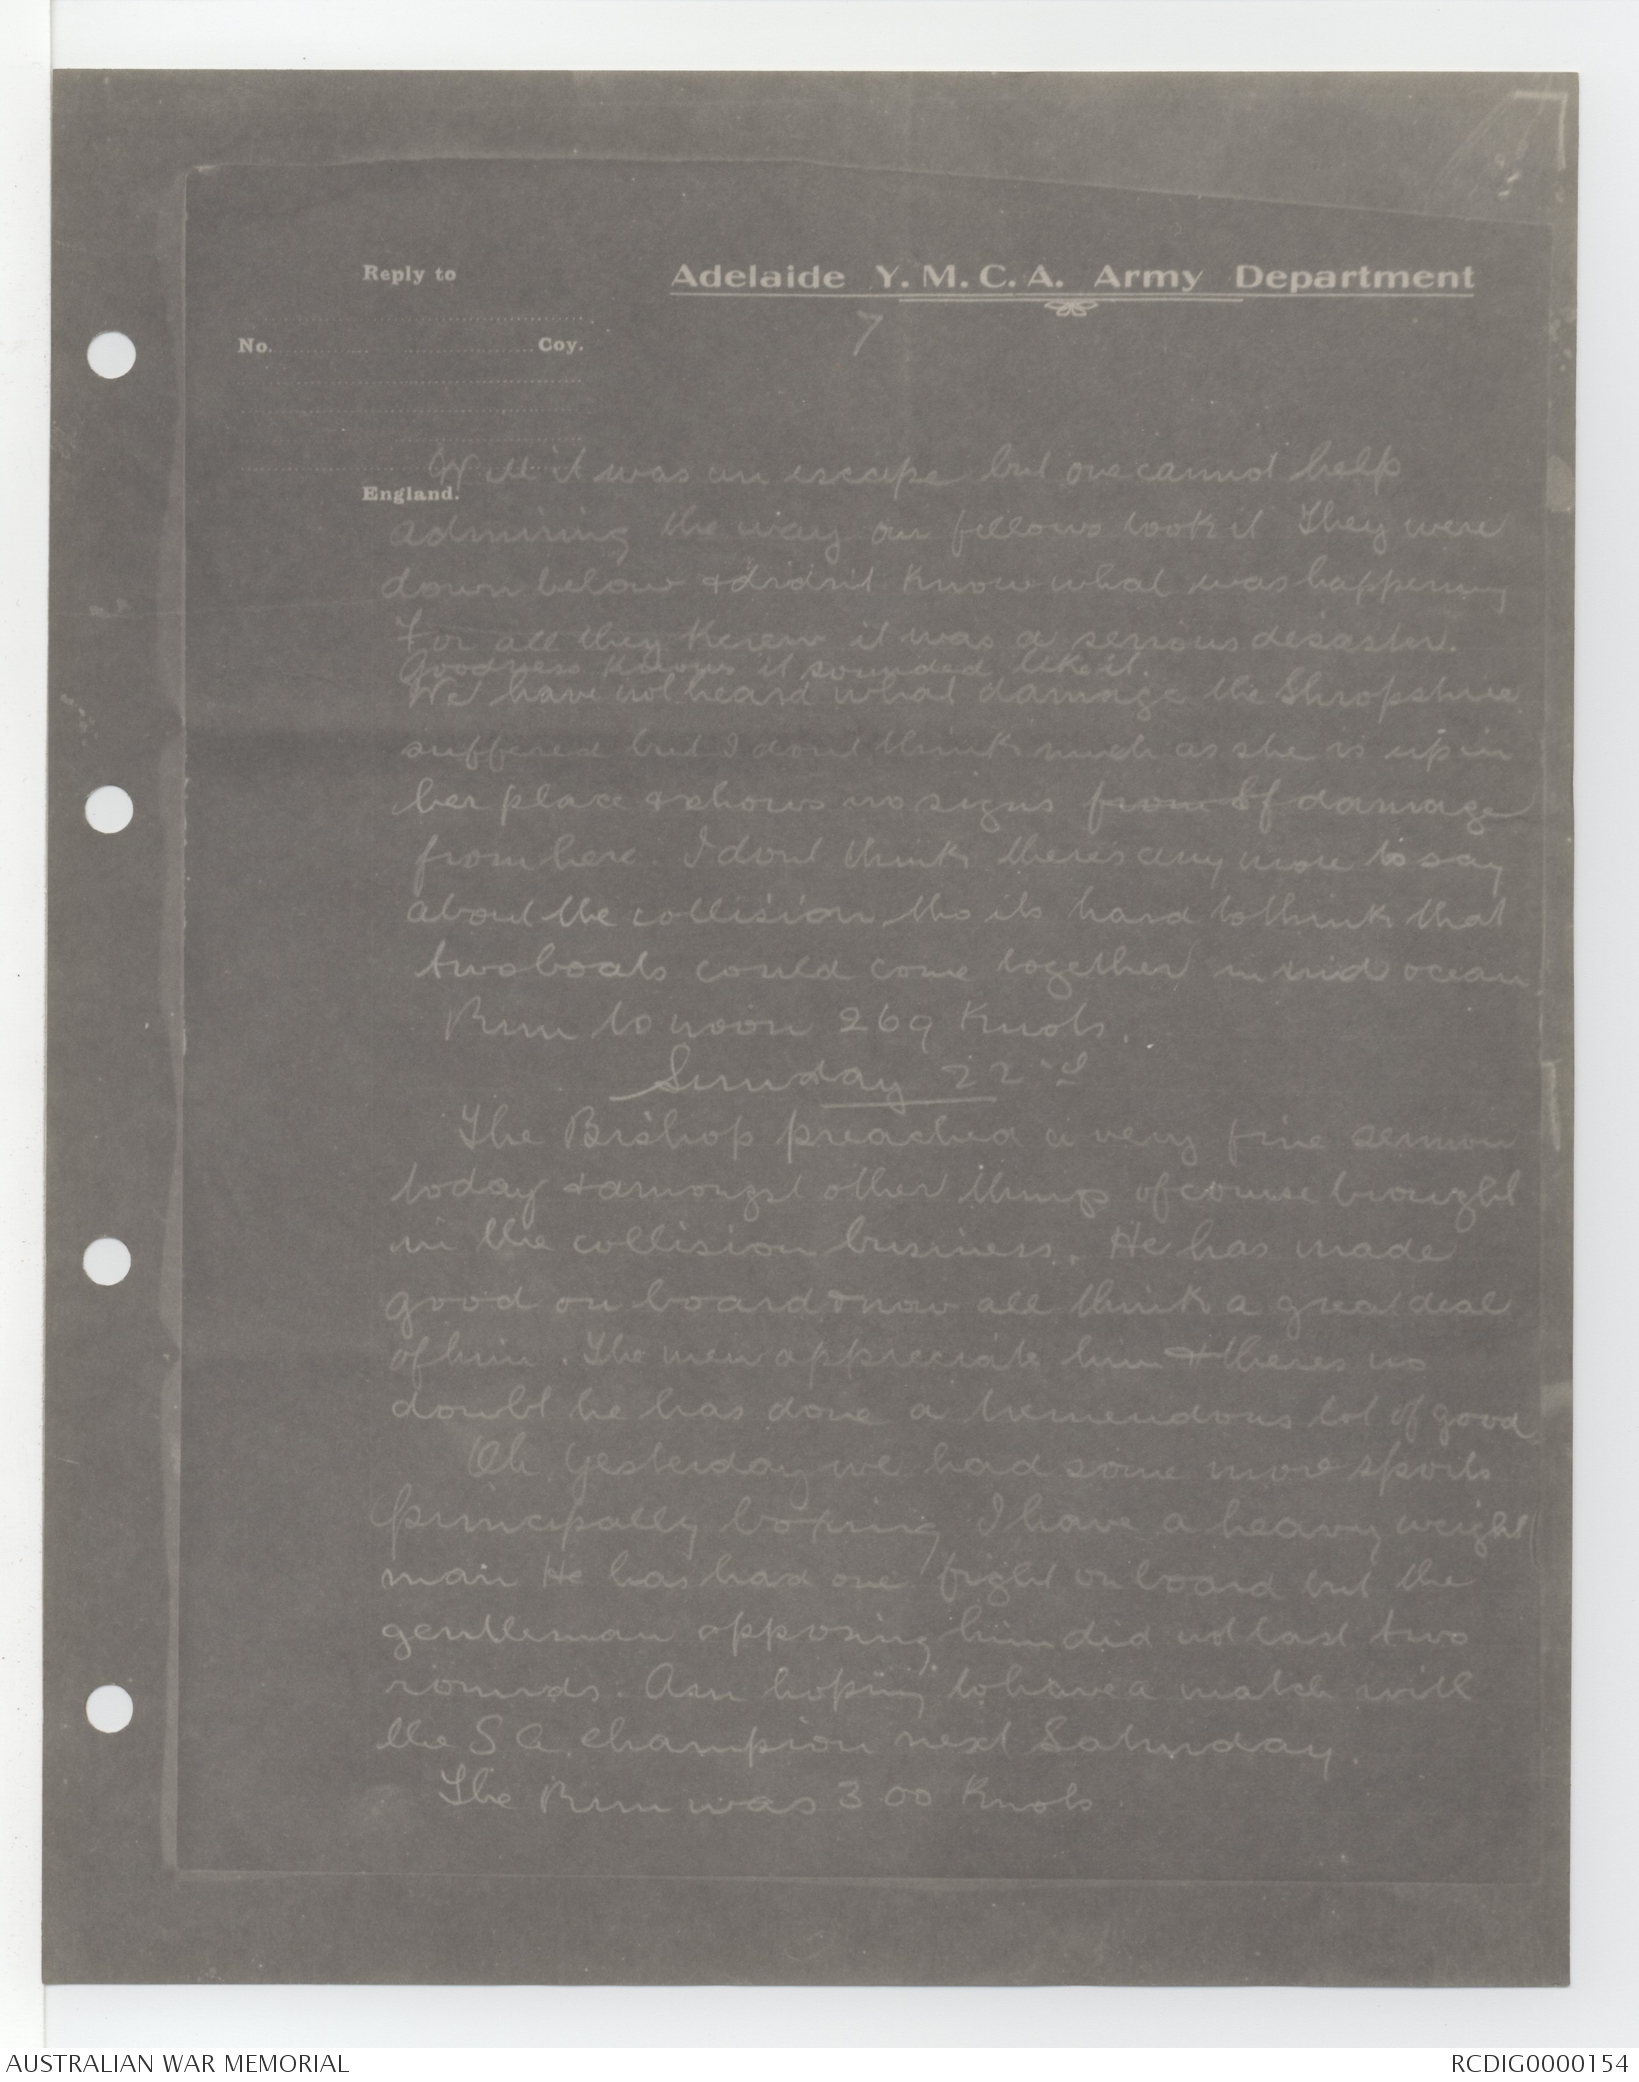 7
Reply to
Adelaide Y. M. C. A. Army Department
7
No. Coy.
England.
Well it was an escape but one cannot help
admiring the way our fellows took it They were
down below & didn't know what was happening
For all they knew it was a serious desaster.
Goodness knows it sounded like it.
We have not heard what damage the Shropshire
suffered but I dont think much as she is up in
her place & shows no signs from of damage
from here. I dont think there's any more to say
about the collision tho its hard to think that
two boats could come together in mid ocean
Run to noon 269 Knots.
Sunday 22nd
The Bishop preached a very fine sermon
today & amongst other things of course brought
in the collision business. He has made
good on board & now all think a great deal
of him. The men appreciate him & theres no
doubt he has done a tremendous lot of good
Oh yesterday we had some more sports
principally boxing I have a heavy weight
man He has had one fight on board but the
gentleman opposing him did not last two
rounds. Am hoping to have a match with
the S A. champion next Saturday.
The Run was 300 Knots
AUSTRALIAN WAR MEMORIAL
RCDIG0000154